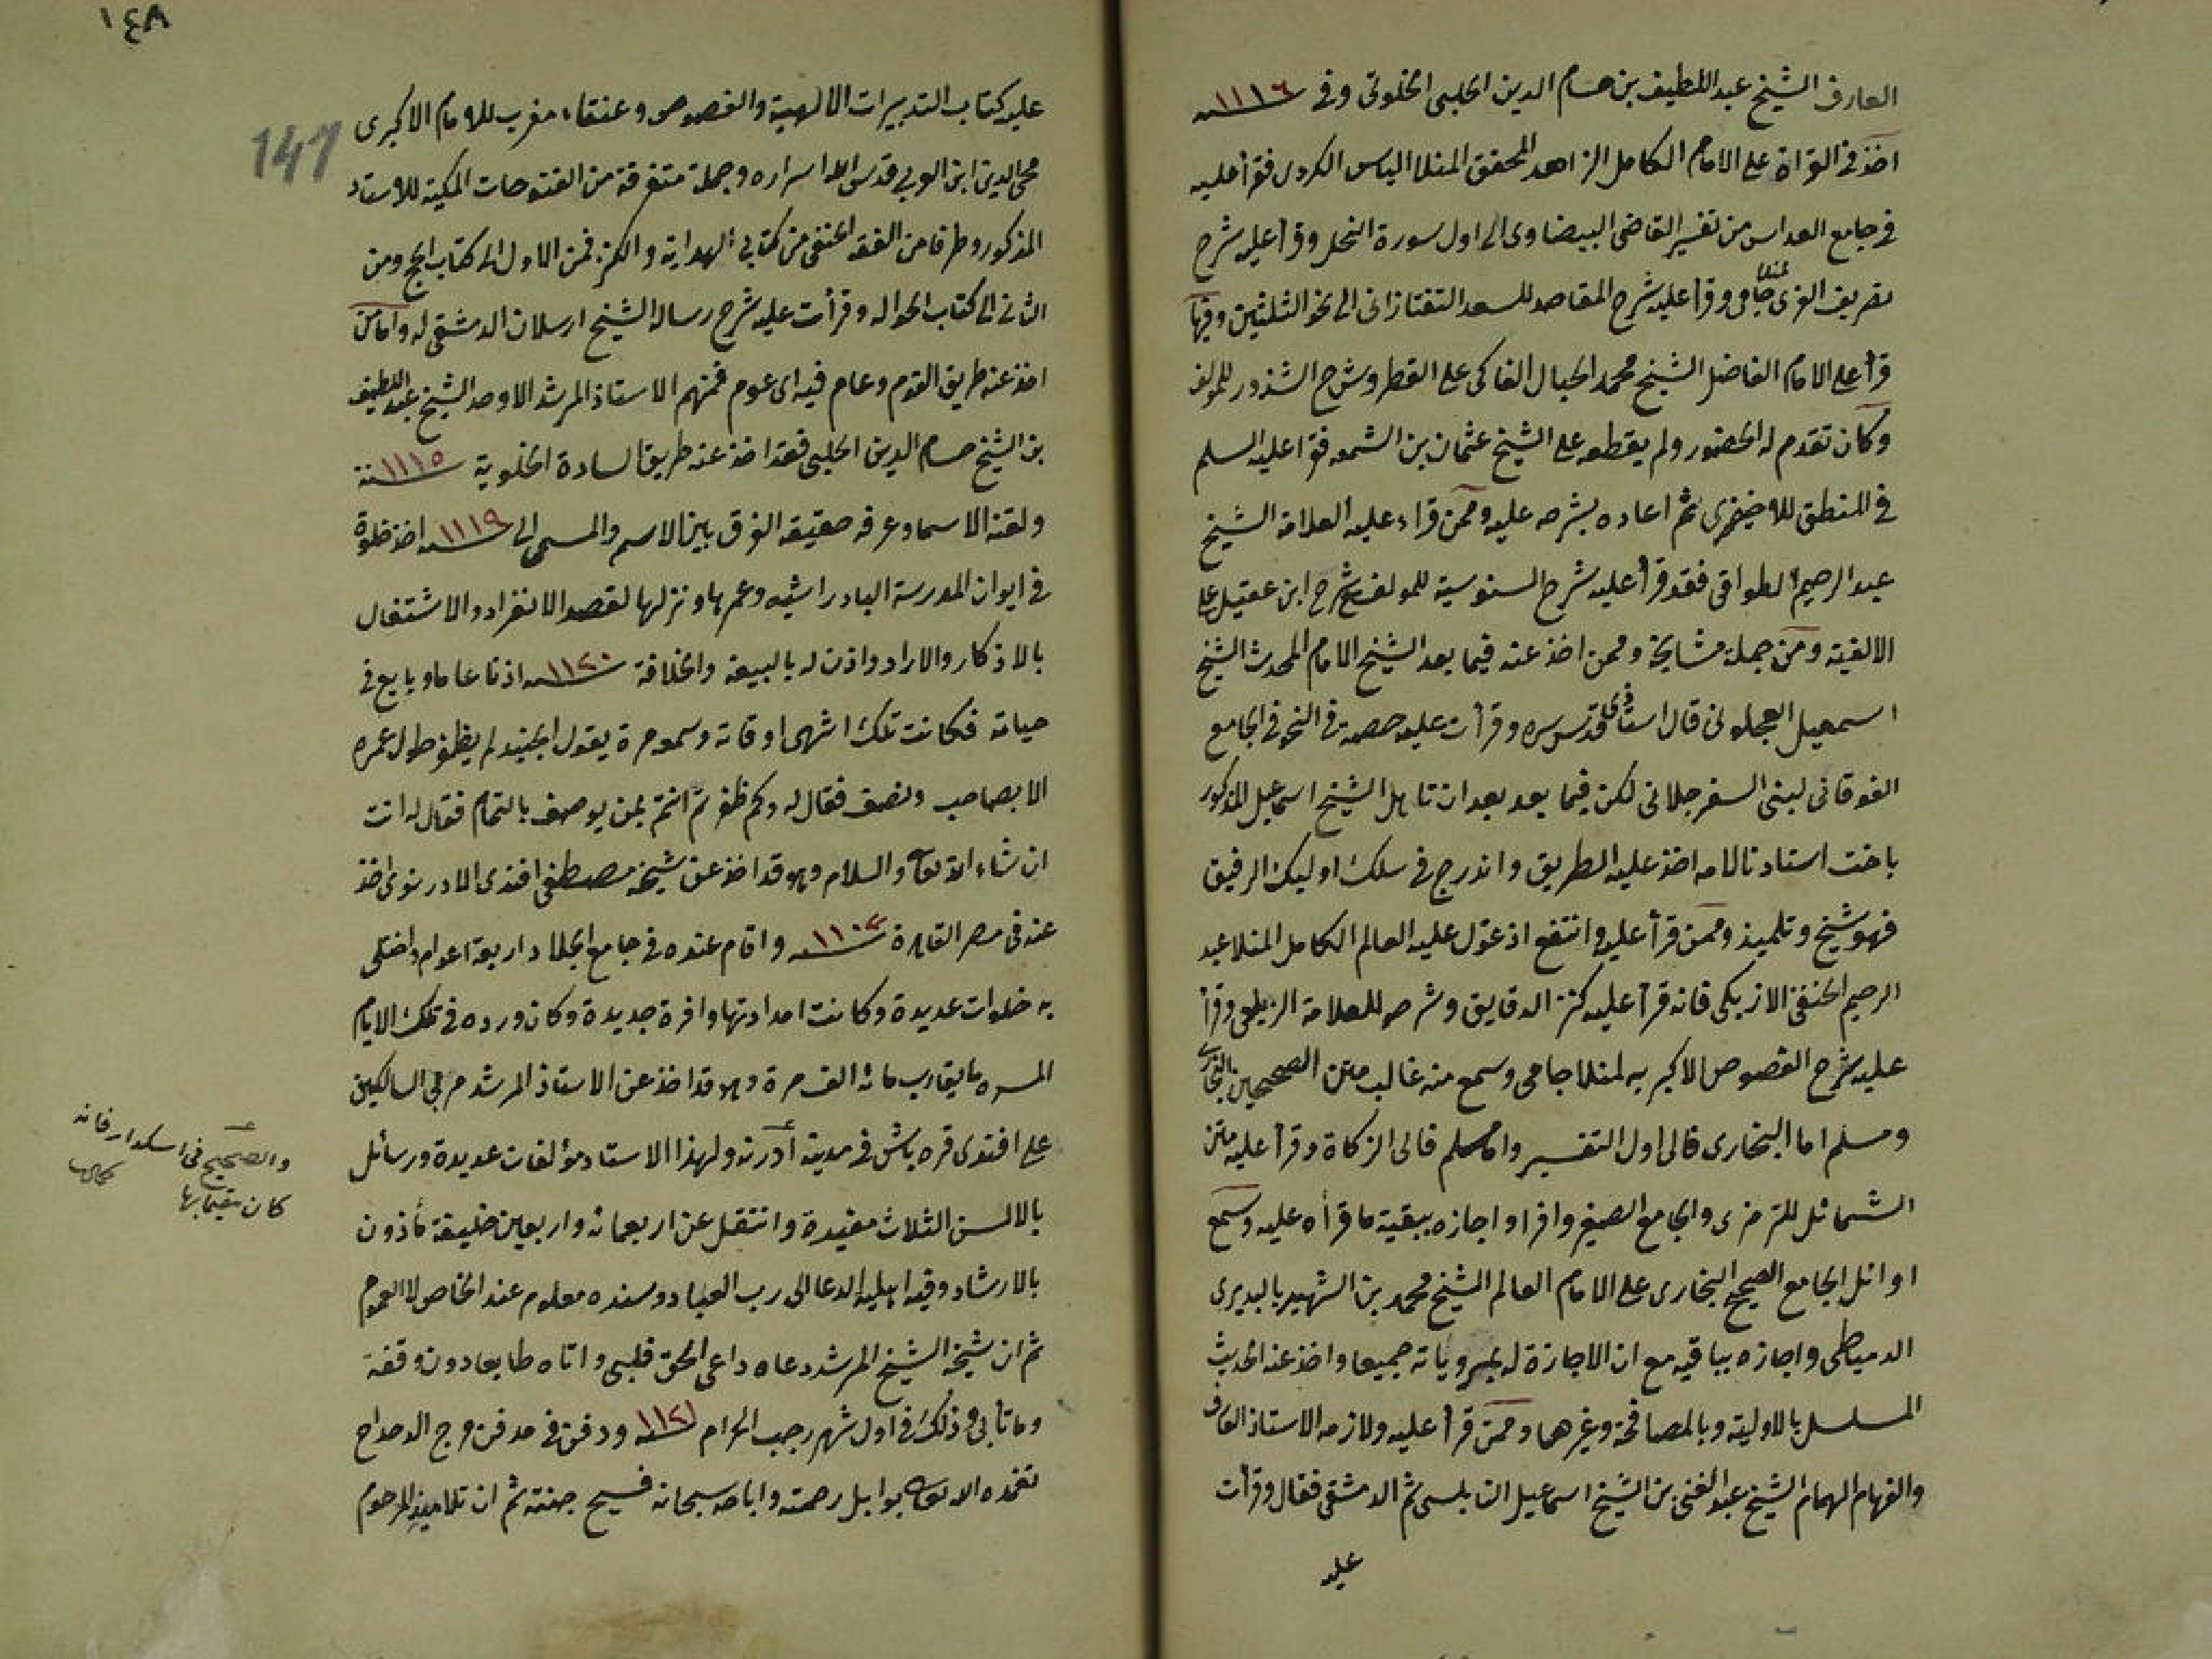 العارف الشيخ عبد اللطيف بن حسام الدين الحلبي الخلوتي وفي سنه ١١١٦
اخذ في القراة على الامام الكامل الزاهد المحقق المنلا الياس الكردي فقرأ عليه
في جامع العداس من تفسير القاضي البيضاوي الى اول سورة النحل وقرأ عليه شرح
تصريف العزى لمنلا جامى وقرأ عليه شرح المقاصد للسعد التفتازاني الى نحو الثلثين وفيها
قرأ على الامام الفاضل الشيخ محمد الحبال الفاكهى على القطر وشرح الشذور للمولف
وكان تقدم له الحضور ولم يقطعه على الشيخ عثمان بن الشمعه فقرا عليه السلم
في المنطق للاخضرى ثم اعاده بشرحه عليه وممن قراء عليه العلامة الشيخ
عبد الرحيم الطواقى فقد قرأ عليه شرح السنوسية للمولف وشرح ابن عقيل على
الالفية ومن جملة مشايخه وممن اخذ عنه فيما بعد الشيخ الامام المحدث الشيخ
اسمعيل العجلوني قال استاذى قدس سره وقرأت عليه حصة في النحو في الجامع
الفوقاني لبني السفرجلاني لكن فيما بعد بعد ان تاهل الشيخ اسماعيل المذكور
باخت استادنا لامه اخذ عليه الطريق واندرج في سلك اوليك الرفيق
فهو شيخ وتلميذ وممن قرأ عليه وانتفع اذ عوّل عليه العالم الكامل المنلا عبد
الرحيم الحنفي الازبكي فانه قرأ عليه كنز الدقايق وشرحه للعلامة الزيلعي وقرأ
عليه شرح الفصوص الاكبريه لمنلا جامي وسمع منه غالب متن الصحيحين البخارى
ومسلم اما البخارى فالى اول التفسير واما مسلم فالى الزكاة وقرأ عليه متن
الشمائل للترمزى والجامع الصغير وافرا واجازه ببقية ما قرأه عليه وسمع
اوائل الجامع الصحيح البخارى على الامام العالم الشيخ محمد بن الشهير بالبديرى
الدمياطى واجازه بباقيه مع ان الاجازة له بمروياته جميعا واخذ عنه الحديث
المسلسل بالاولية وبالمصافحة وغيرهما وممن قرأ عليه ولازمه الاستاذ العارف
والفهام الهمام الشيخ عبد الغنى بن الشيخ اسماعيل النابلسى ثم الدمشقى فقال وقرأت
عليه
١٤٨
147
عليه كتاب التدبيرات الالهية والفصوص وعنقاء مغرب للامام الاكبرى
محى الدين ابن العربى قدس الله اسراره وجملة متفرقة من الفتوحات المكية للاستاد
المذكور وطرفا من الفقه الحنفى من كتابى الهداية والكنز فمن الاول الى كتاب الحج ومن
الثانى الى كتاب الحواله وقرأت عليه شرح رسالة الشيخ ارسلان الدمشقى له واما من
اخذ عنه طريق القوم وعام فيه اى عوم فمنهم الاستاذ المرشد الاوحد الشيخ عبد اللطيف
بن الشيخ حسام الدين الحلبى فقد اخذ عنه طريق السادة الخلوتية سنة ١١١٥
ولقنه الاسما وعرفه حقيقة الفرق بين الاسم والمسمى الى سنه ١١١٩ اخذ خلوة
في ايوان المدرسة البادراشيه وعمرها ونزلها لقصد الانفراد والاشتغال
بالاذكار والاراد واذن له بالبيعة والخلافة سنه ١١٢٠ اذنا عاما وبايع في
حياته فكانت تلك اشهى اوقاته وسمعه مرة يقول الجنيد لم يظفر طول عمره
الا بصاحب ونصف فقال له وكم ظفرتم انتم بمن يوصف بالتمام فقال له انت
ان شاء الله تعالى والسلام وهو قد اخذ عن شيخه مصطفى افندى الادرنوى اخذ
عنه فى مصر القاهرة سنه ١١٠٣ واقام عنده في جامع الجلاد اربعة اعوام واختلى
به خلوات عديدة وكانت امداداتها وافرة جديدة وكان ورده في تلك الايام
المسره ما يقارب مائة الف مرة وهو قد اخذ عن الاستاذ المرشد مربي السالكين
على افندى قره باش في مدينة أدرنه ولهذا الاستاد مؤلفات عديدة ورسائل
بالالسن الثلاث مفيدة وانتقل عن اربعمائه واربعين خليفة مأذون
بالارشاد وفيه اهلية الدعا الى رب العباد وسنده معلوم عند الخاص لا العموم
ثم ان شيخه الشيخ المرشد دعاه داعى الحق فلبى واتاه طايعا دون وقفة
وما تأبى وذلك في اول شهر رجب الحرام سنه ١١٢١ ودفن في مدفن مرج الدحداح
تغمده الله تعالى بوابل رحمته واباحه سبحانه فسيح جنته ثم ان تلاميذ المرحوم
والصحيح في اسكدار فانه
كان مقيما بها